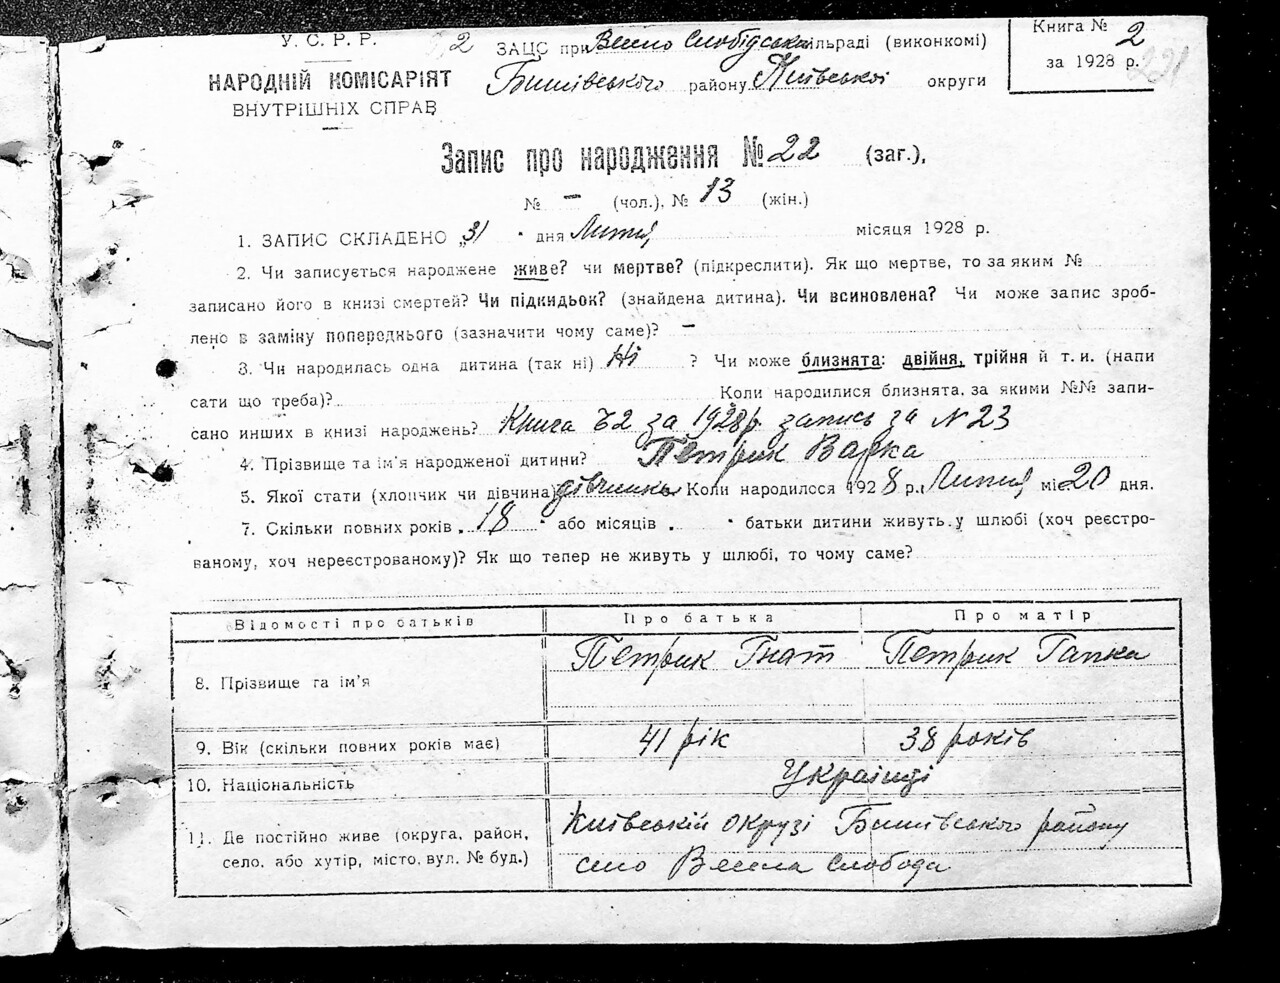 У. С. Р. Р.
НАРОДНІЙ КОМІСАРІЯТ
ВНУТРІШНІХ СПРАВ
2 ЗАЦС при Весело Слобідськ ільраді (виконкомі)
Бишівського району Київської округи
Книга № 2
за 1928 р.
221
Запис про народження № 22 (заг.),
№ — (чол.), № 13 (жін.)
1. ЗАПИС СКЛАДЕНО „31 " дня Липня місяця 1928 р.
2. Чи записується народжене живе? чи мертве? (підкреслити). Як що мертве, то за яким №
записано його в книзі смертей? Чи підкидьок? (знайдена дитина). Чи всиновлена? Чи може запис зроб-
лено в заміну попереднього (зазначити чому саме)? —
3. Чи народилась одна дитина (так ні) Ні ? Чи може близнята: двійня, трійня й т. и. (напи
сати що треба)? Коли народилися близнята, за якими №№ запи-
сано инших в книзі народжень? Книга №2 за 1928 р. запись за №23
4. Прізвище та ім'я народженої дитини? Петрик Варка
5. Якої стати (хлопчик чи дівчина) дівчинка Коли народилося 1928 р., Липня міс 20 дня.
7. Скільки повних років „ 18 " або місяців „ " батьки дитини живуть у шлюбі (хоч реєстро-
ваному, хоч нереєстрованому)? Як що тепер не живуть у шлюбі, то чому саме?
Відомості про батьків Про батька Про матір
8. Прізвище та ім'я Петрик Гнат Петрик Гапка
9. Вік (скільки повних років має) 41 рік 38 років
10. Національність Українці
11. Де постійно живе (округа, район, Київській окрузі Бишівського району
село, або хутір, місто, вул. № буд.) село Весела Слобода